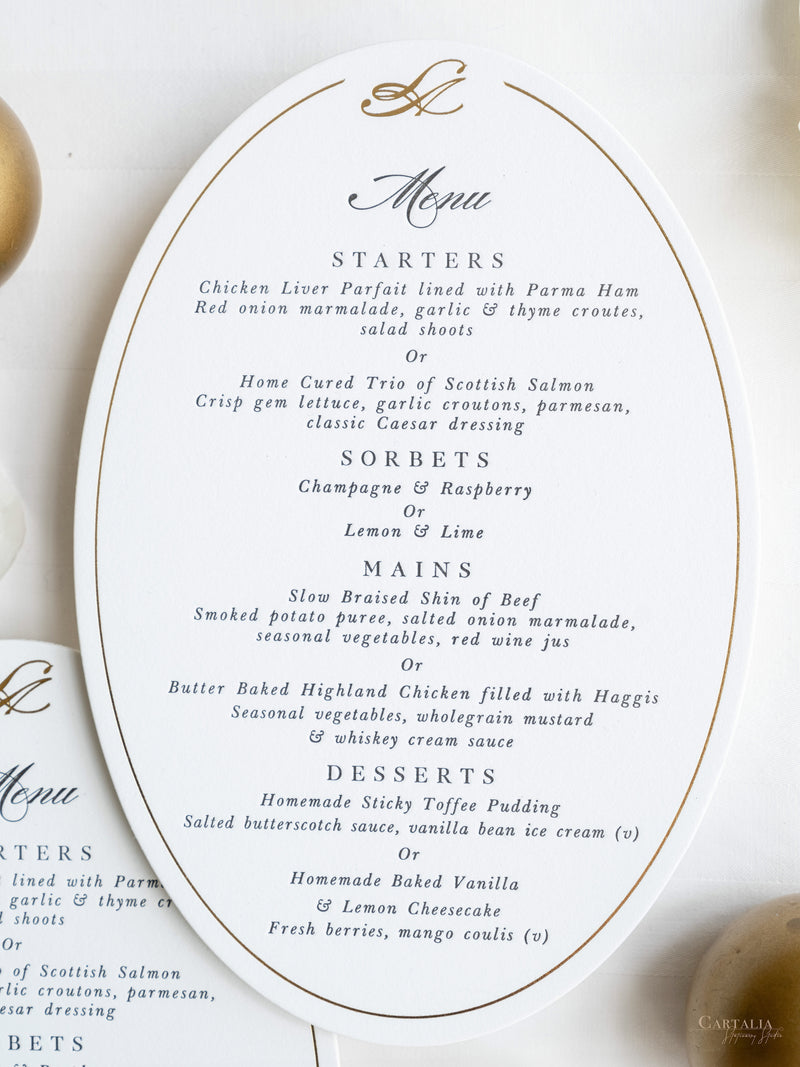 SA
Menu
STARTERS
Chicken Liver Parfait lined with Parma Ham
Red onion marmalade, garlic & thyme croutes,
salad shoots
Or
Home Cured Trio of Scottish Salmon
Crisp gem lettuce, garlic croutons, parmesan,
classic Caesar dressing
SORBETS
Champagne & Raspberry
Or
Lemon & Lime
MAINS
Slow Braised Shin of Beef
Smoked potato puree, salted onion marmalade,
seasonal vegetables, red wine jus
Or
Butter Baked Highland Chicken filled with Haggis
Seasonal vegetables, wholegrain mustard
& whiskey cream sauce
DESSERTS
Homemade Sticky Toffee Pudding
Salted butterscotch sauce, vanilla bean ice cream (v)
Or
Homemade Baked Vanilla
& Lemon Cheesecake
Fresh berries, mango coulis (v)
SA
Menu
RTERS
lined with Parm
garlic & thyme cr
shoots
Or
of Scottish Salmon
rlic croutons, parmesan,
esar dressing
BETS
CARTALIA